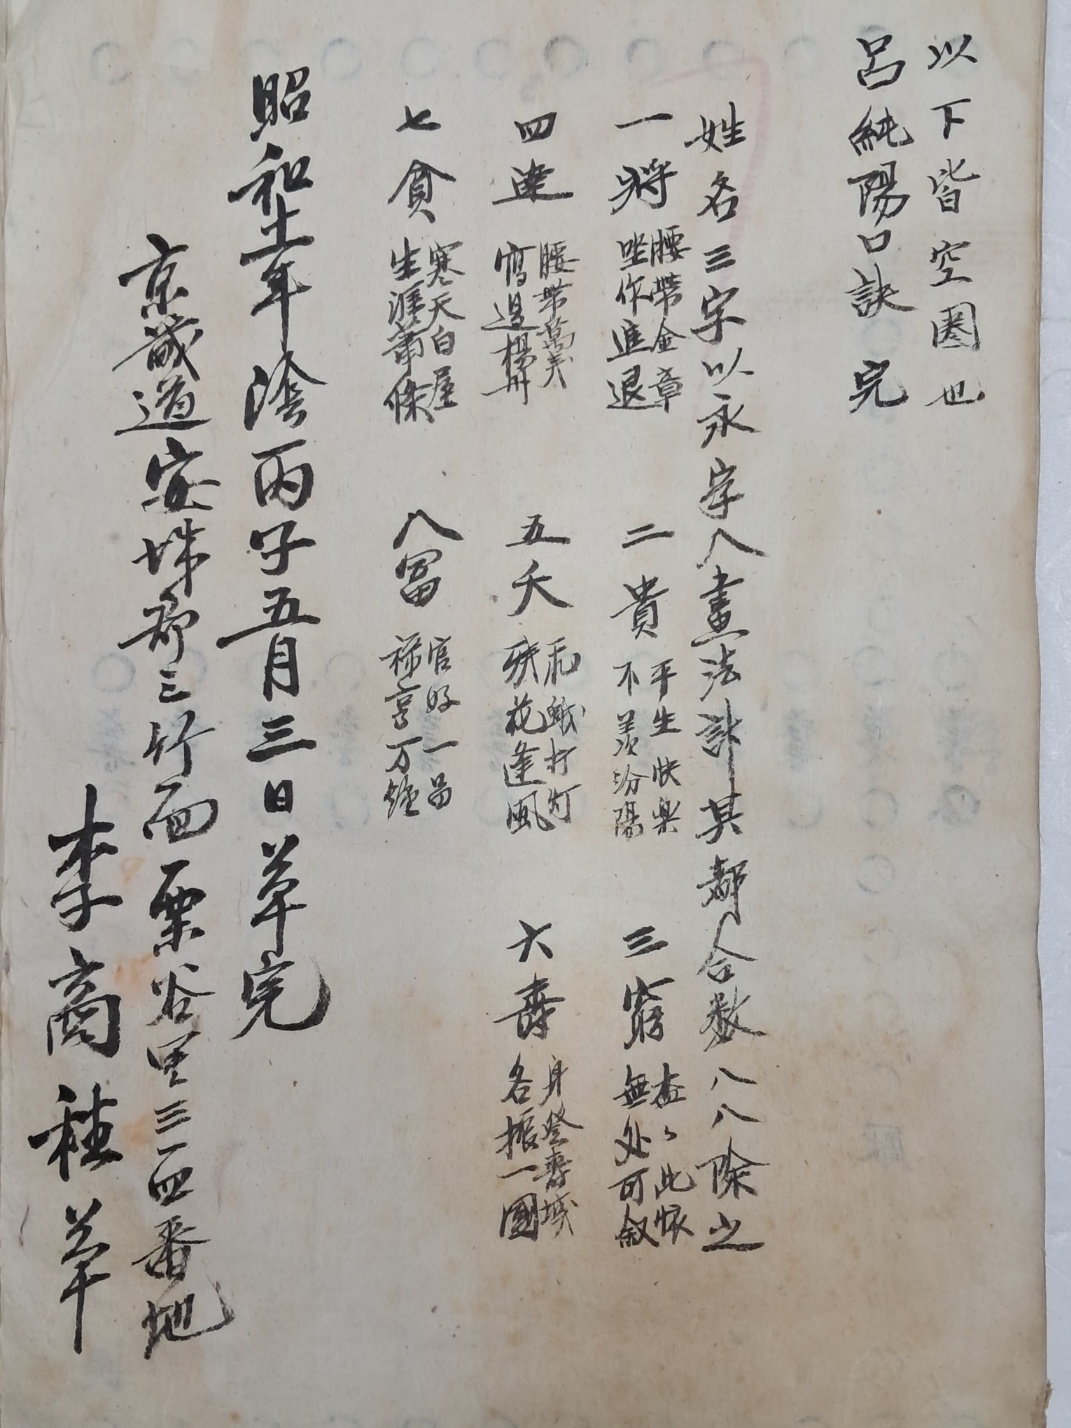 以下皆空圈也
呂純陽口訣 完
姓名三字以永字八畫法計其都合数八八除之
一将 腰帶金章 坐作進退
二貴 平生快樂 不羨汾陽
三窮 此懷 無处可叙
四達 腰帶萬 過楊州
五夭 蛾打灯 残花逢風
六壽 身登壽域 名振一國
七貧 寒天白屋 生涯蕭條
八富 官好一品 祿享万鍾
昭和十一年陰丙子五月三日草完
京畿道安城郡三竹面栗谷里三一四番地
李商稙草